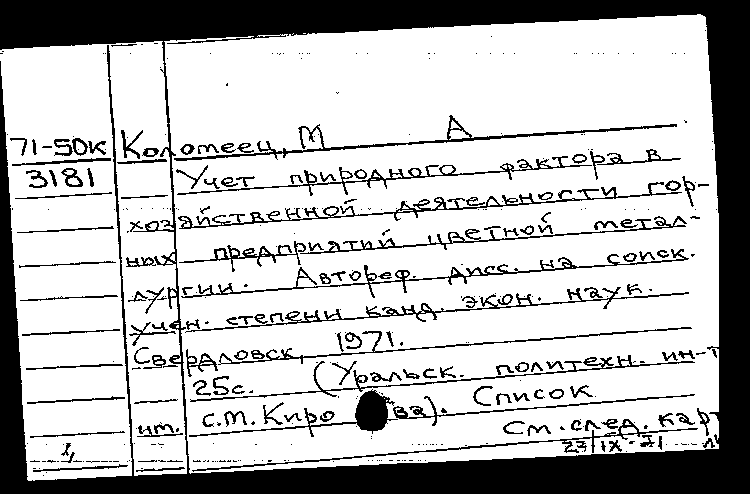 71-50к Коломеец, М А
3181 Учет природного фактора в
хозяйственной деятельности гор-
ных предприятий цветной метал-
лургии. Автореф. дисс. на соиск.
учен. степени канд. экон. наук.
Свердловск, 1971.
25с. (Уральск. политехн. ин-т
им. С.М. Кирова). Список
См. след. карт
23/IX-71